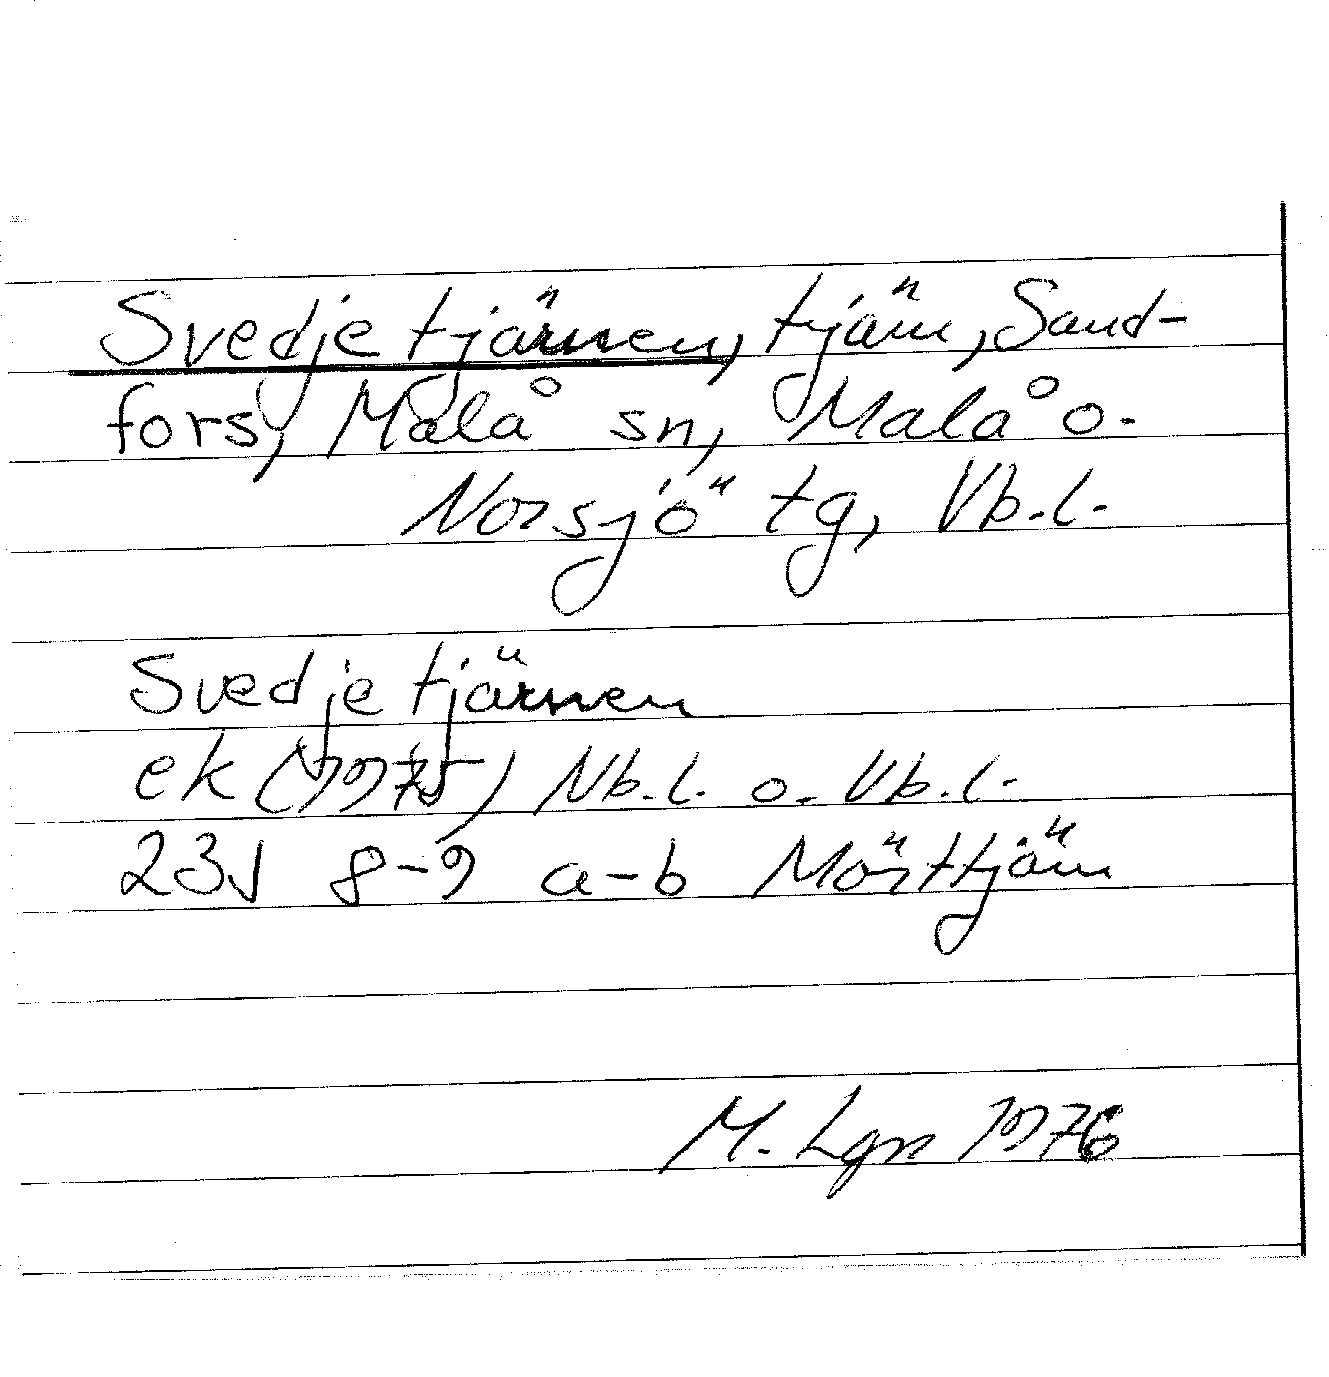 Svedjetjärnen, tjärn, Sand-
fors, Malå sn, Malå o.
Norsjö tg, Vb.l.
Svedjetjärnen
ek (1975) Nb.l. o. Vb.l.
23J 8-9 a-b Mörttjärn
M. Lgn 1976